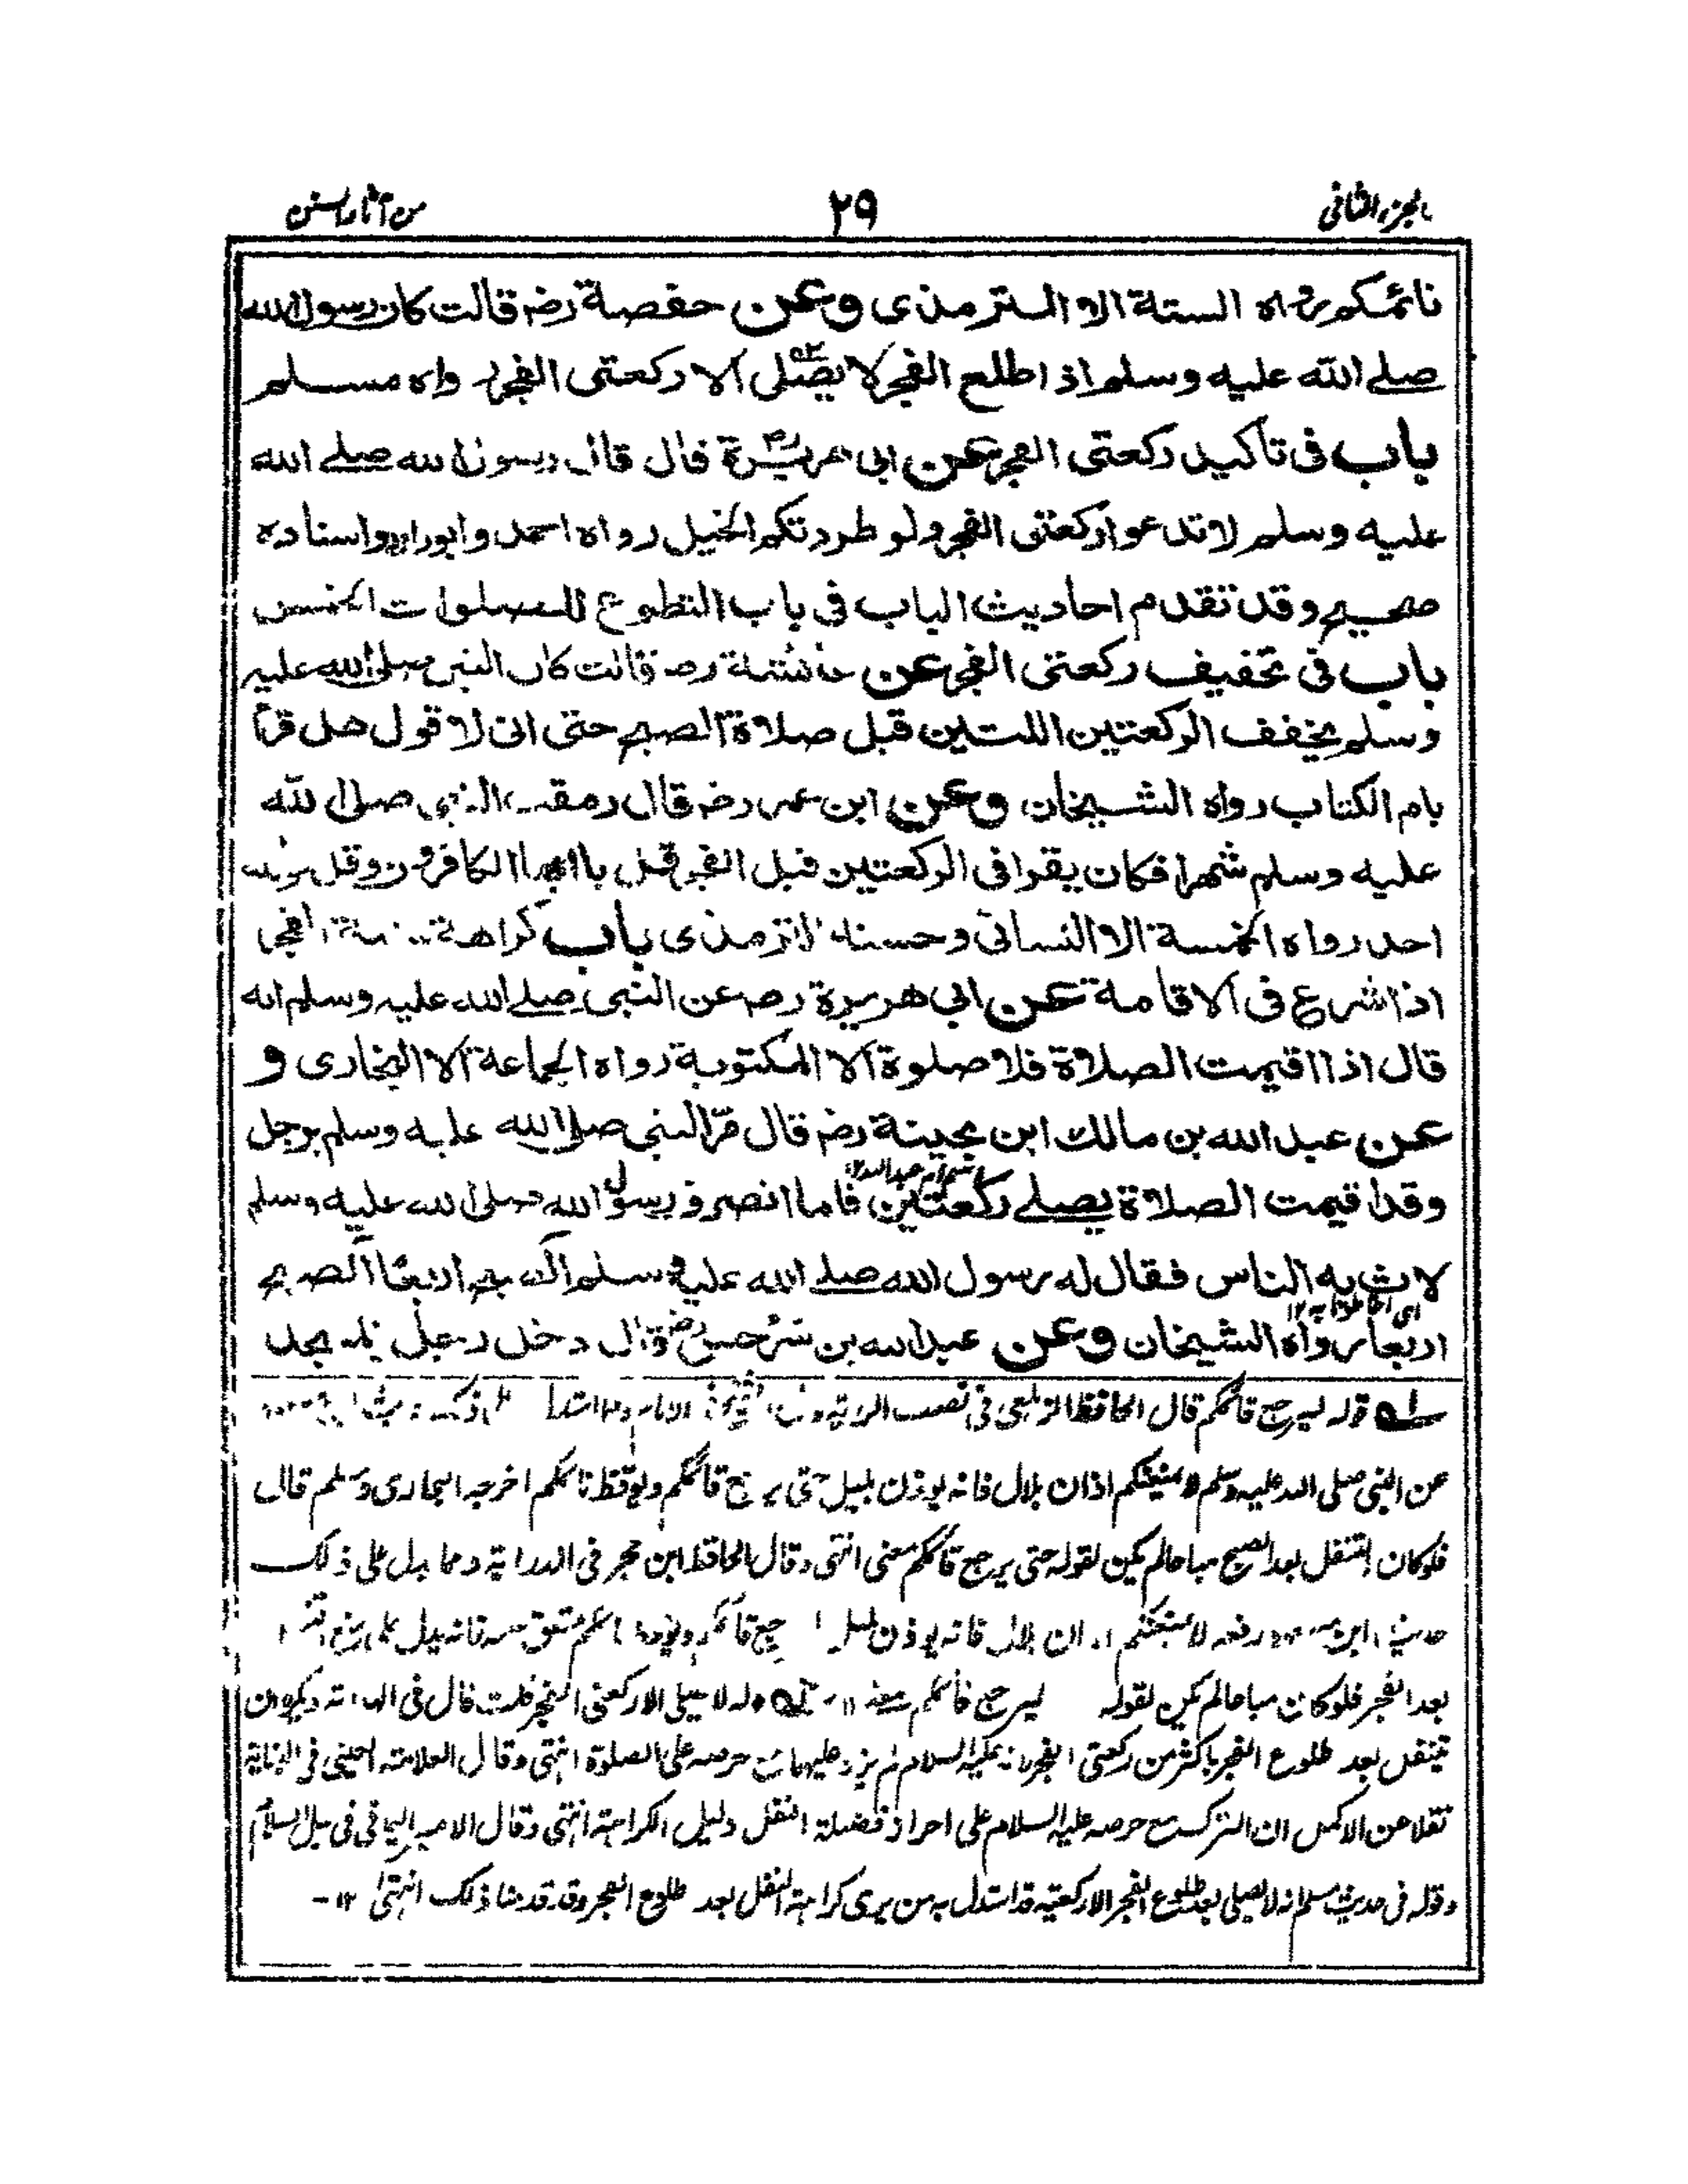 الجزء الثانى
٢٩
من آثار السنن
نائمكم رواه الستة الا الترمذى وعن حفصة رضـ قالت كان رسول الله
صلے الله عليه وسلم اذا طلع الفجر لا يصلى الا ركعتى الفجر رواه مسلم
باب فى تاكيد ركعتى الفجر عن ابى هريرة قال قال رسول الله صلے الله
عليه وسلم لا تدعوا ركعتى الفجر ولو طردتكم الخيل رواه احمد وابوداود واسناده
صحيح وقد تقدم احاديث الباب فى باب التطوع للصلوات الخمس
باب فى تخفيف ركعتى الفجر عن عائشة رضـ قالت كان النبى صلى الله عليه
وسلم يخفف الركعتين اللتين قبل صلاة الصبح حتى انى لاقول هل قرأ
بام الكتاب رواه الشيخان وعن ابن عمر رضـ قال رمقت النبى صلى الله
عليه وسلم شهرا فكان يقرا فى الركعتين قبل الفجر قل يا ايها الكافرون وقل هو الله
احد رواه الخمسة الا النسائى وحسنه الترمذى باب كراهة سنة الفجر
اذا شرع فى الاقامة عن ابى هريرة رضـ عن النبى صلے الله عليه وسلم انه
قال اذا اقيمت الصلاة فلا صلوة الا المكتوبة رواه الجماعة الا البخارى و
عن عبد الله بن مالك ابن بحينة رضـ قال مرّ النبى صلى الله عليه وسلم برجل
وقد اقيمت الصلاة يصلے ركعتين فلما انصرف رسول الله صلى الله عليه وسلم
لاث به الناس فقال له رسول الله صلے الله عليه وسلم الصبح اربعًا الصبح
اى احاطوا به ١٢
اربعا رواه الشيخان وعن عبد الله بن سرجس رضـ قال دخل رجل المسجد
قوله ليرجع قائمكم قال الحافظ الزيلعى فى نصب الراية الشيخ فى الامام
عن النبى صلى الله عليه وسلم لا يمنعنكم اذان بلال فانه يوذن بليل حتى يرجع قائمكم ويوقظ نائمكم اخرجه البخارى ومسلم قال
فلو كان التنفل بعد الصبح مباحا لم يكن لقوله حتى يرجع قائمكم معنى انتهى وقال الحافظ ابن حجر فى الدراية ومما يدل على ذلك
حديث ابن مسعود رفعه لا يمنعنكم اذان بلال فانه يوذن بليل ليرجع قائمكم ويوقظ نائمكم متفق عليه فانه يدل على منع التنفل
بعد الفجر فلو كان مباحا لم يكن لقوله ليرجع قائمكم معنى ١٢ قوله لا يصلى الا ركعتى الفجر قلت قال فى الهداية ويكره ان
يتنفل بعد طلوع الفجر باكثر من ركعتى الفجر لانه عليه السلام لم يزد عليهما مع حرصه على الصلوة انتهى وقال العلامة العينى فى البناية
نقلا عن الاكمل ان الترك مع حرصه عليه السلام على احراز فضيلة النفل دليل الكراهة انتهى وقال الامير اليمانى فى سبل السلام
وقوله فى حديث مسلم انه لا يصلى بعد طلوع الفجر الا ركعتيه قد استدل به من يرى كراهة النفل بعد طلوع الفجر وقد قدمنا ذلك انتهى ١٢ -